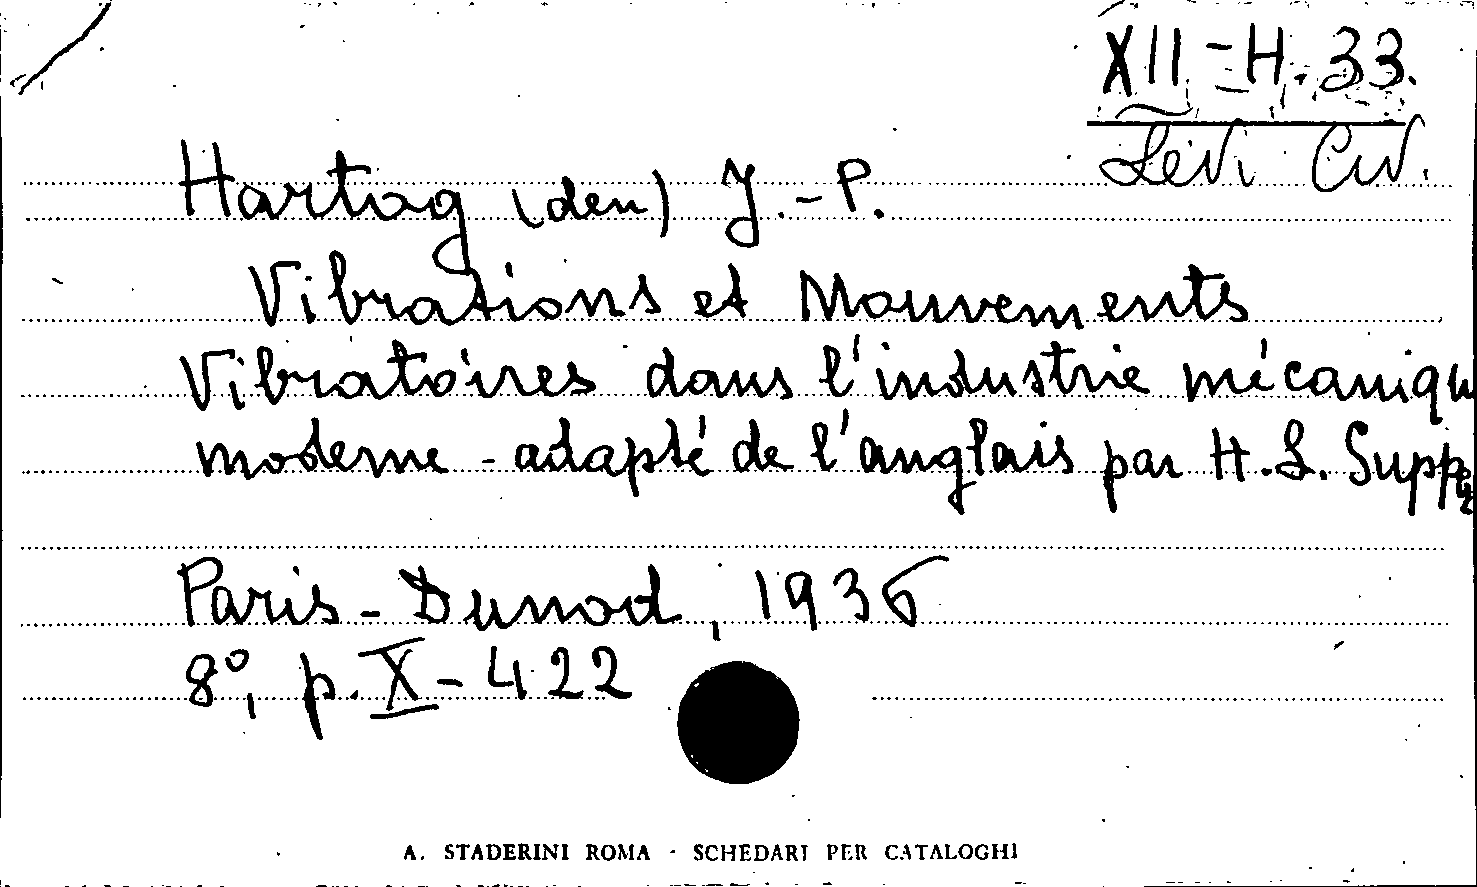 XII - H. 33.
Levi Civ.
Hartog (den) J.-P.
Vibrations et Mouvements
Vibratoires dans l'industrie mécaniqu
moderne - adapté de l'anglais par H. L.
Paris - Dunod, 1936
8°, p. X - 422
A. STADERINI ROMA - SCHEDARI PER CATALOGHI